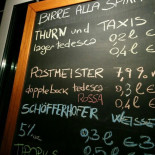 BIRRE ALLA SPINA
THURN und TAXIS
lager tedesca 0,2 l €
0,4 l €
POSTMEISTER 7,9%
doppelbock tedesca 0,3
ROSSA 0,5
SCHÖFFERHOFER WEISSE
5% 0,3 €
0,5 €